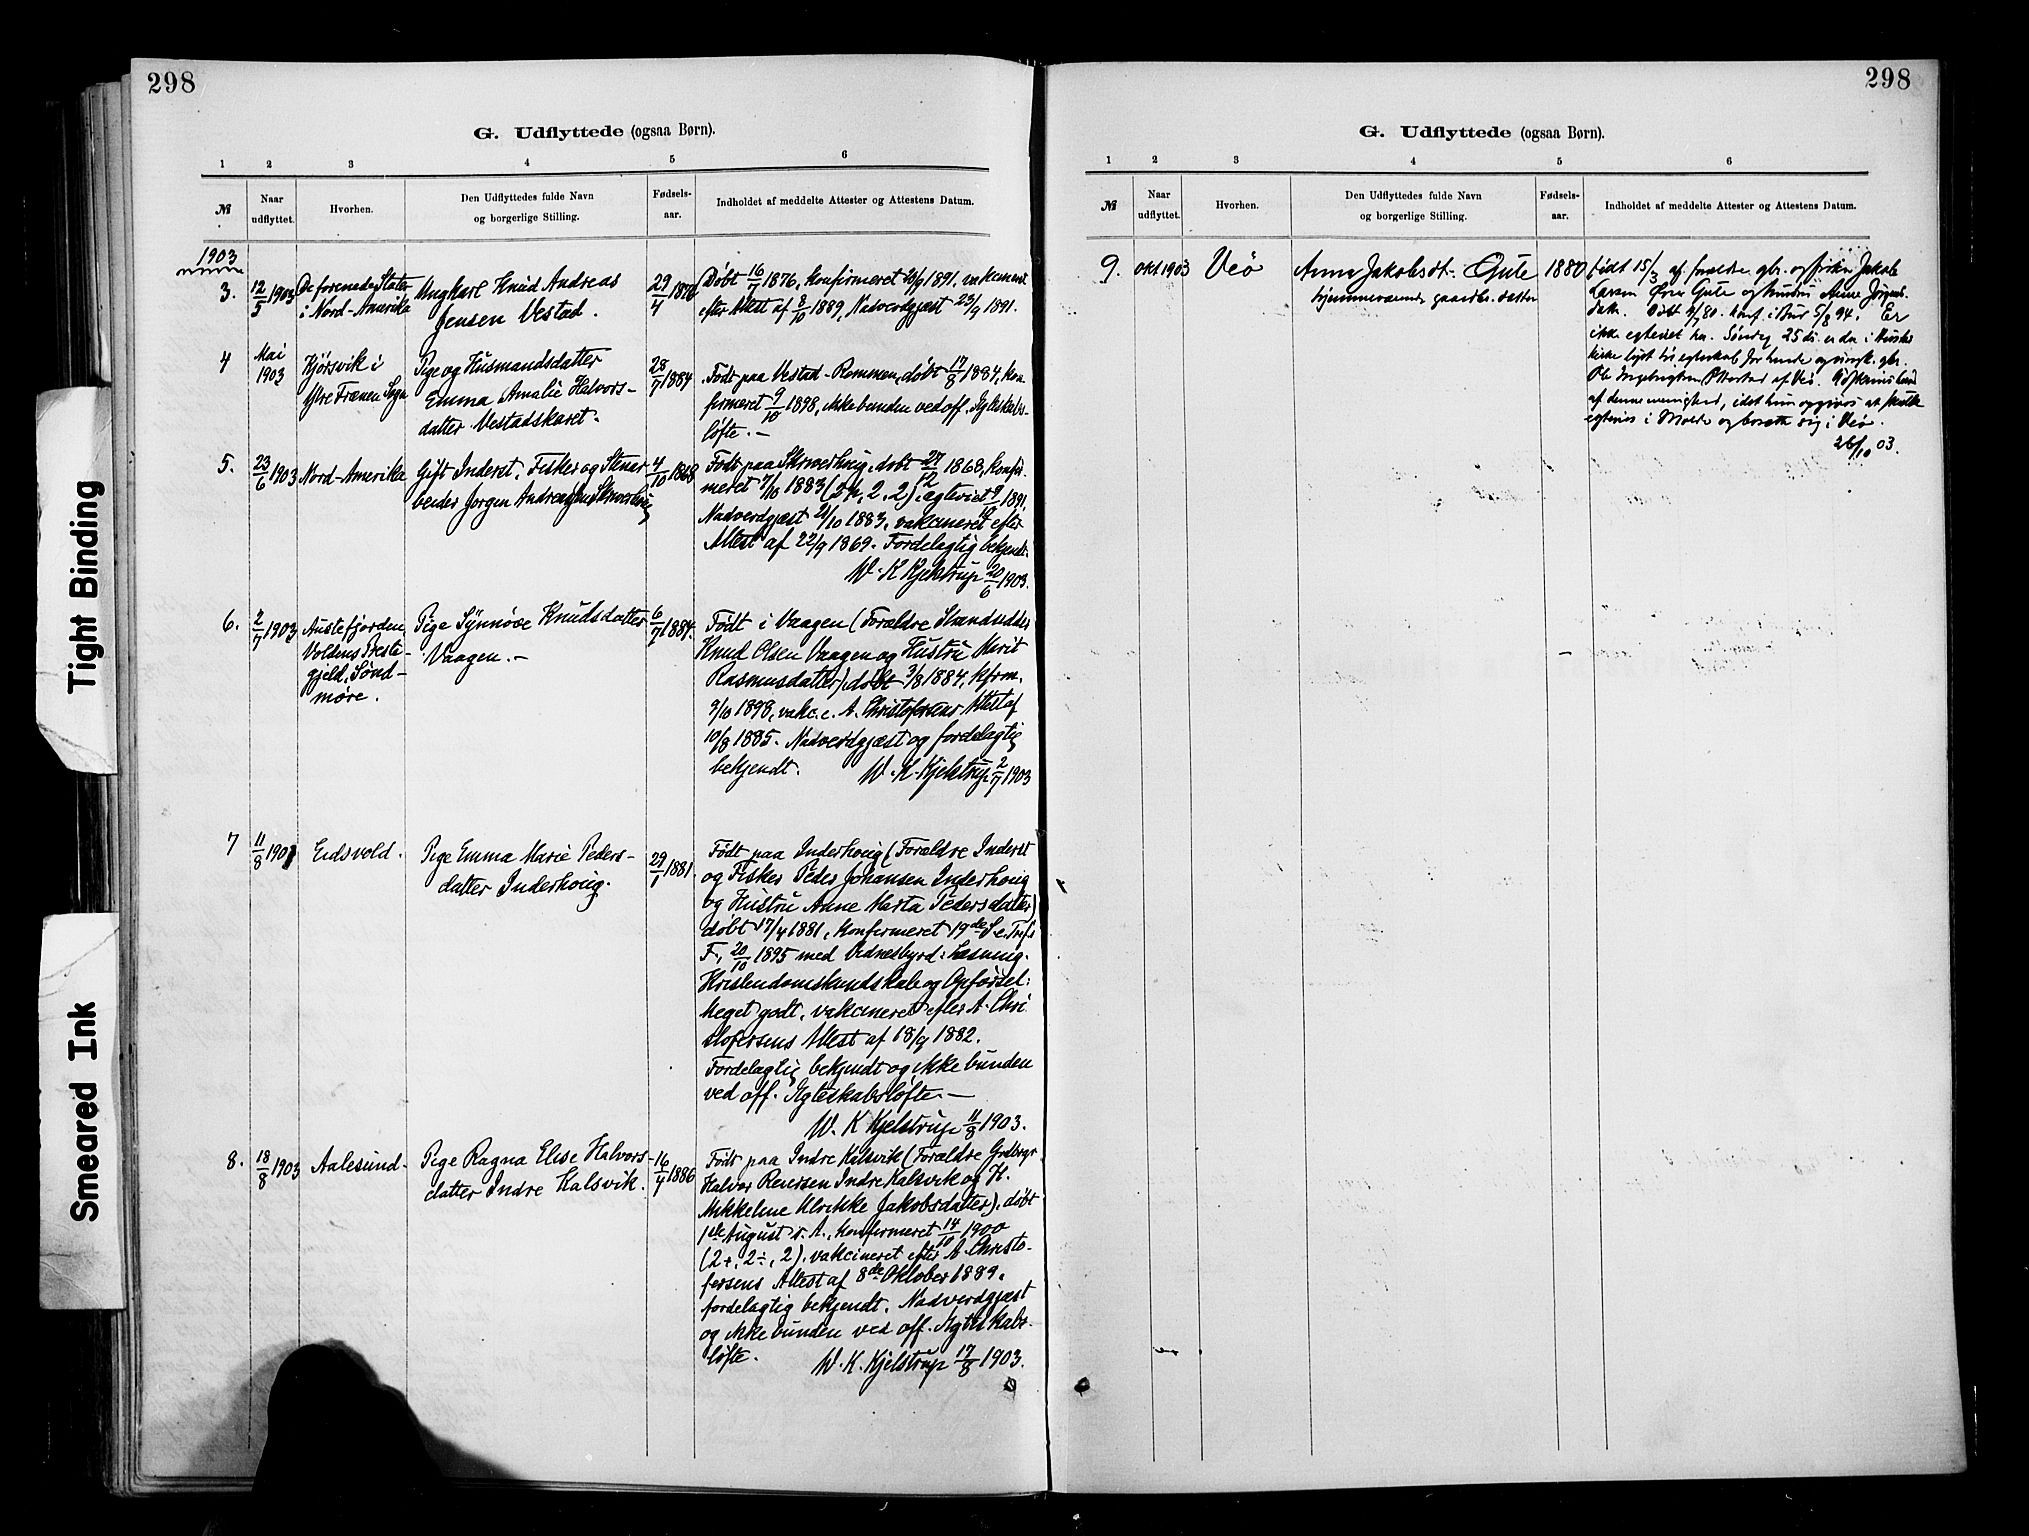 298
G. Udflyttede (ogsaa Børn).
1 2 3 4 5 6
№ Naar udflyttet. Hvorhen. Den Udflyttedes fulde Navn og borgerlige Stilling. Fødsels-aar. Indholdet af meddelte Attester og Attestens Datum.
1903
3. 12/5 1903 De forenede Stater i Nord-Amerika
Ungkarl Knud Andreas
Jensen Vestad.
29/4 1876
Døbt 16/7 1876, konfirmeret 1891, vakcineret
efter Attest af 8/10 1889, Nadverdgjæst 23/9 1891.
4 Mai 1903
Kjørsvik i
Ytre Frænen Sogn
Pige og Husmandsdatter
Emma Amalie Halvors-
datter Vestadskaret.
28/7 1884
Født paa Vestad-Remmen, døbt 17/8 1884, kon
firmeret 9/10 1898, ikke bunden ved off. Ægteskabs-
løfte. –
5. 23/6 1903 Nord-Amerika
Gift Inderst, Fisker og Stener
bender Jørgen Andreas
4/10 1868
Født paa Skverhoug, døbt 27/12 1868, konfir
meret 7/10 1883 (3 2. 2), egteviet 1891,
Nadverdgjæst 21/10 1883, vakcineret efter
Attest af 22/9 1869. Fordelagtig bekjendt.
W. K Kjelstrup 20/6 1903.
6. 2/7 1903
Austefjorden
Voldens Preste-
gjeld, Sønd-
møre.
Pige Synnøve Knudsdatter
Vaagen. –
6/7 1884.
Født i Vaagen (Forældre Strandsidder
Knud Olsen Vaagen og Hustru Marit
Rasmusdatter), døbt 3/8 1884, kfrm.
9/10 1898, vakc. e. A. Christofersens Attest af
10/8 1885. Nadverdgjæst og fordelagtig
bekjendt. W. K. Kjelstrup 2/7 1903
7 11/8 1903 Eidsvold.
Pige Emma Marie Peders-
datter Inderhoug.
29/1 1881.
Født paa Inderhoug (Forældre Inderst
og Fisker Peder Johansen Inderhoug
og Hustru Anne Marta Pedersdatter)
døbt 17/4 1881, konfirmeret 19de S. e. Tref.
F, 20/10 1895 med Vidnesbyrd: Læsning.
Kristendomskundskab og Opførsel:
Meget godt, vakcineret efter A. Chri
stofersens Attest af 18/9 1882.
Fordelagtig bekjendt og ikke bunden
ved off. Ægteskabsløfte. –
W. K Kjelstrup 11/8 1903.
8. 18/8 1903 Aalesund
Pige Ragna Elise Halvors-
datter Indre Kalsvik.
16/7 1886
Født paa Indre Kalsvik (Forældre Grdbrgr.
Halvor Reiersen Indre Kalsvik og H.
Mikkeline Ulrikke Jakobsdatter), døbt
1ste August s. A., konfirmeret 14/10 1900
(2+, 2÷, 2), vakcineret efter A. Christo-
fersens Attest af 8de Oktober 1889.
fordelagtig bekjendt. Nadverdgjæst
og ikke bunden ved off. Ægteskabs-
løfte. W. K. Kjelstrup 17/8 1903.
298
G. Udflyttede (ogsaa Børn).
1 2 3 4 5 6
№ Naar udflyttet. Hvorhen. Den Udflyttedes fulde Navn og borgerlige Stilling. Fødsels-aar. Indholdet af meddelte Attester og Attestens Datum.
9. okt 1903 Veø
Anna Jakobsdt. Gule
hjemmeværende gaardbr. datter
1880
født 15/3 af forældre gbr. og fisker Jakob
Larsen Øvre Gule og hustru Anne Jørgens
datr. Døbt 80. konf. i Bur 5/8 94. Er
ikke egteviet her. Søndag 25 ds. er der i
kirke lyst til egteskab for hende og gbr.
Ole Ingebrigtsen af Veø.
af denne menighed, idet hun opgives at skulle
egtevies i Molde og bosætte sig i Veø.
26/10 03.
Tight Binding
Smeared Ink